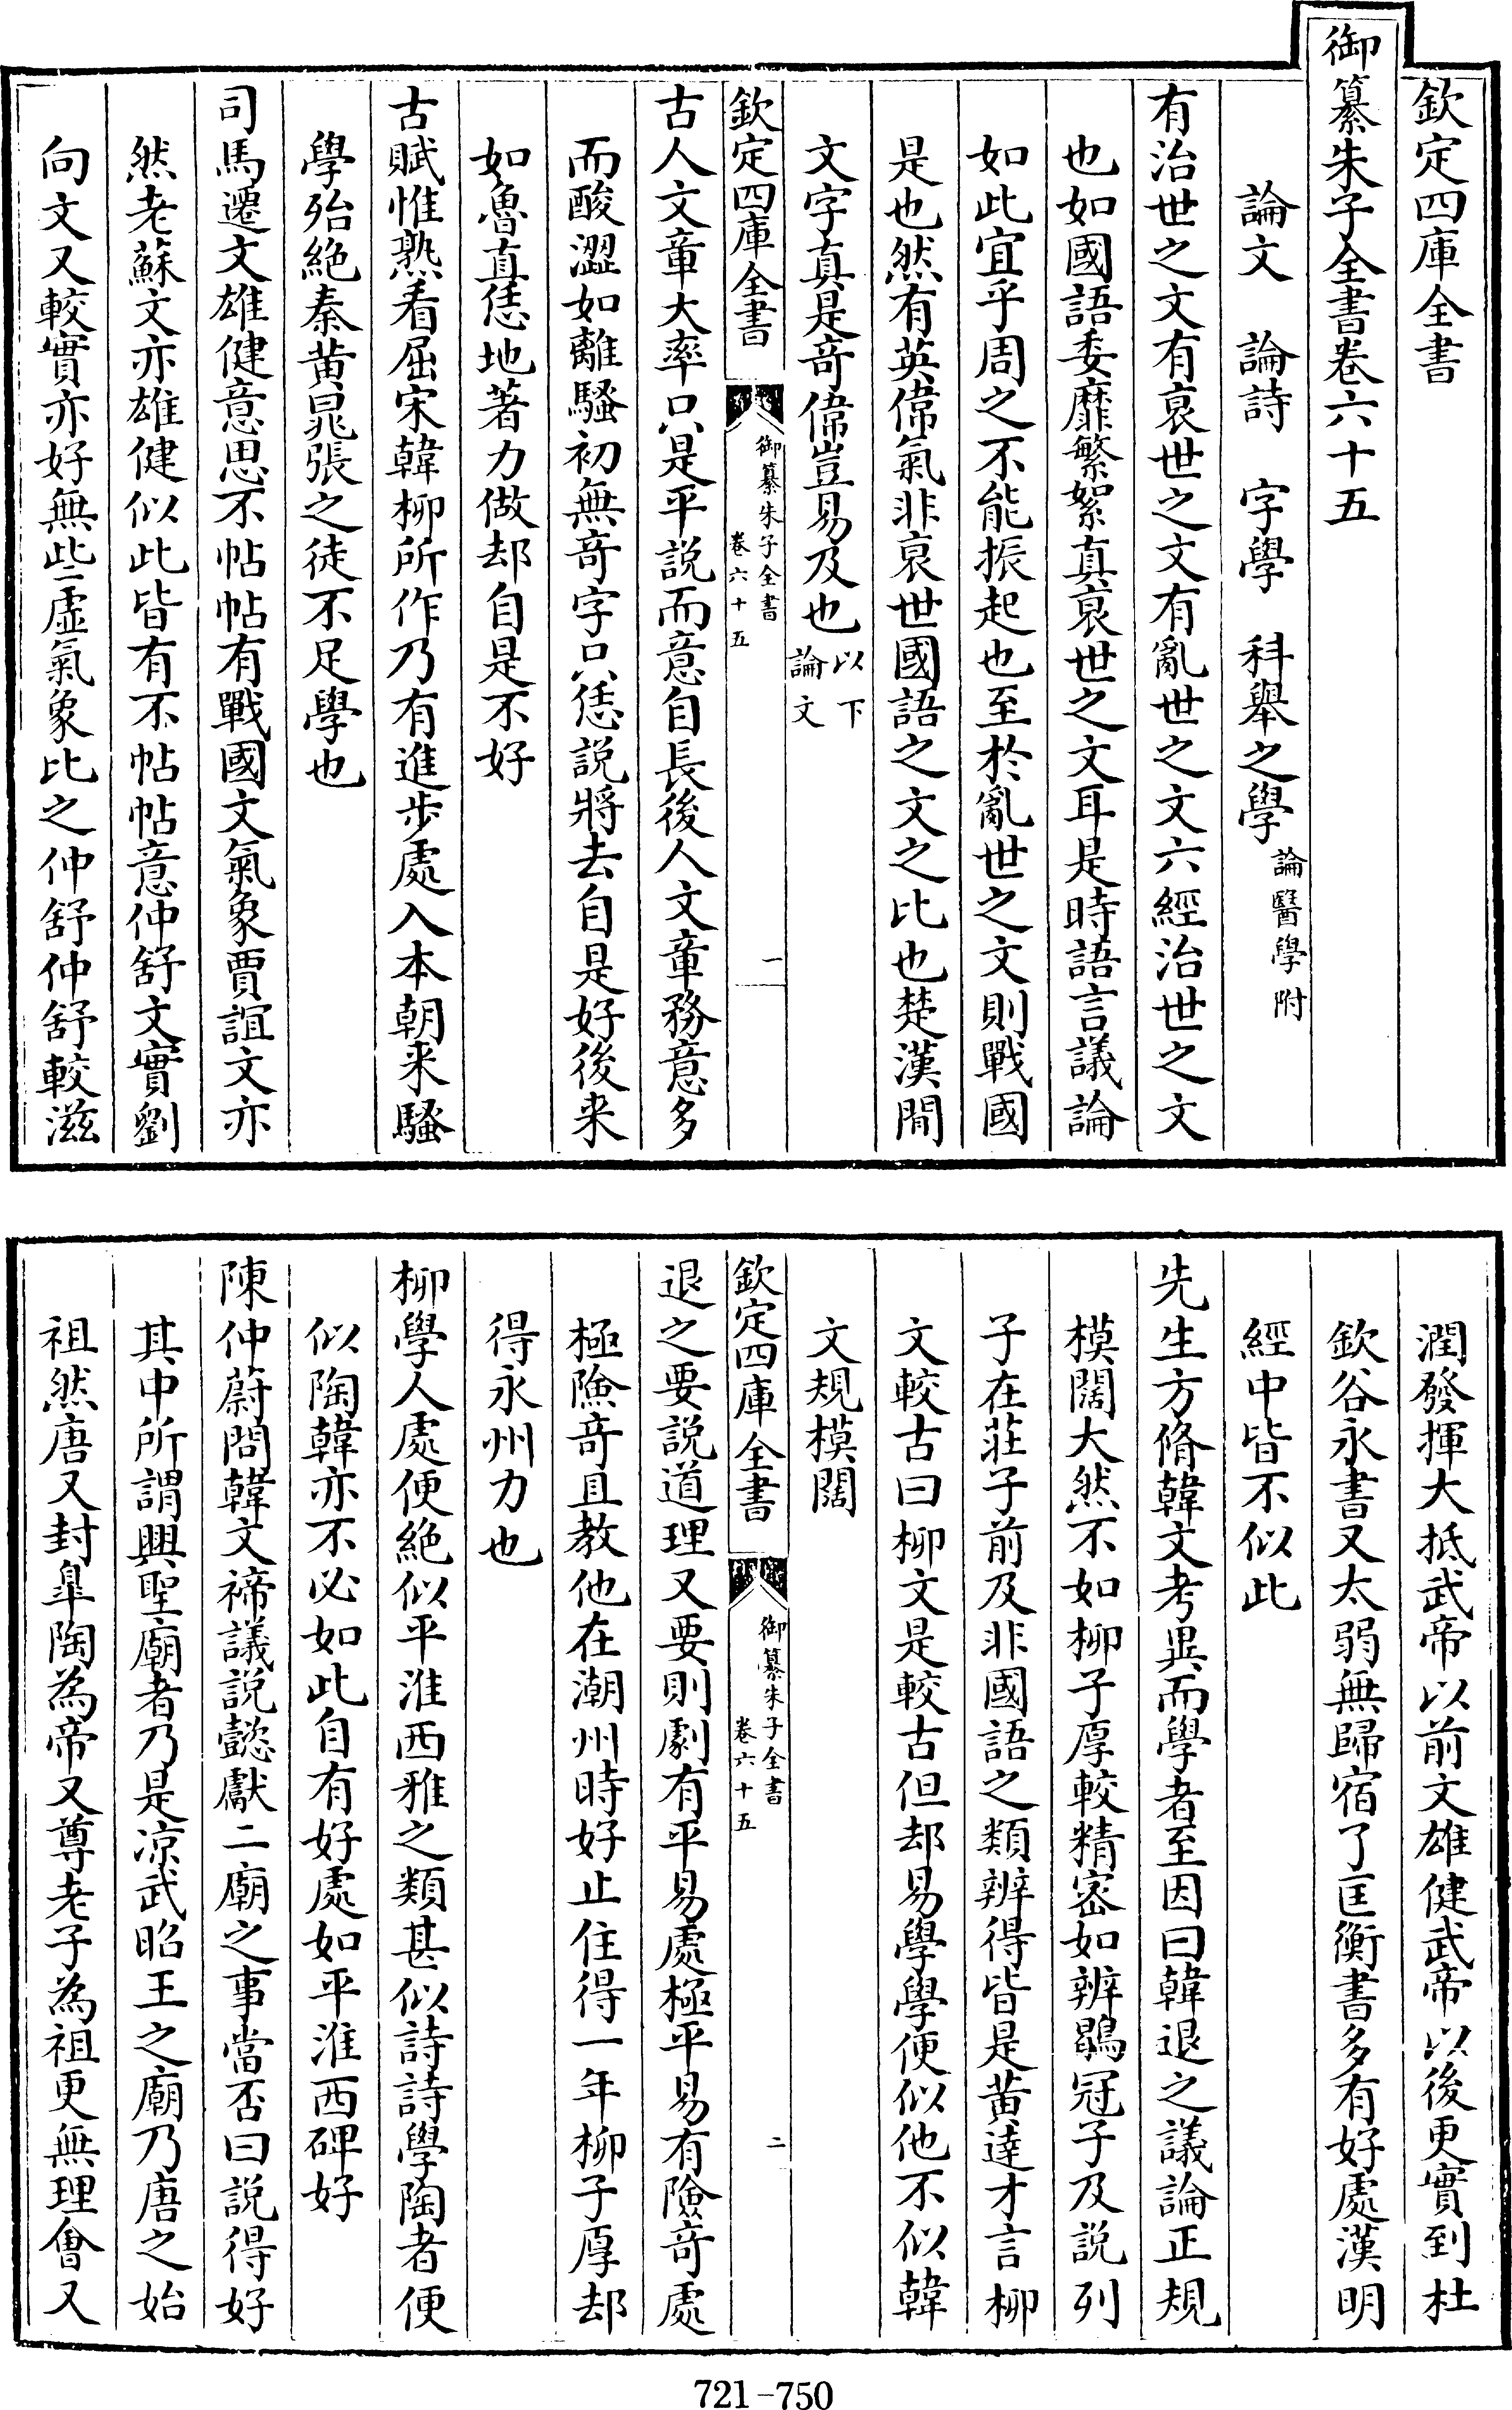 欽定四庫全書
御纂朱子全書卷六十五
論文　論詩　字學　科舉之學論醫學附
有治世之文有衰世之文有亂世之文六經治世之文
也如國語委靡繁絮真衰世之文耳是時語言議論
如此宜乎周之不能振起也至於亂世之文則戰國
是也然有英偉氣非衰世國語之文之比也楚漢間
文字真是竒偉豈易及也以下論文
欽定四庫全書　御纂朱子全書卷六十五　一
古人文章大率只是平説而意自長後人文章務意多
而酸澀如離騷初無竒字只恁説將去自是好後来
如魯直恁地著力做却自是不好
古賦惟熟看屈宋韓柳所作乃有進步處入本朝来騷
學殆絶秦黄晁張之徒不足學也
司馬遷文雄健意思不帖帖有戰國文氣象賈誼文亦
然老蘇文亦雄健似此皆有不帖帖意仲舒文實劉
向文又較實亦好無些虛氣象比之仲舒仲舒較滋
潤發揮大抵武帝以前文雄健武帝以後更實到杜
欽谷永書又太弱無歸宿了匡衡書多有好處漢明
經中皆不似此
先生方脩韓文考異而學者至因曰韓退之議論正規
模闊大然不如柳子厚較精密如辨鶡冠子及説列
子在莊子前及非國語之類辨得皆是黄達才言柳
文較古曰柳文是較古但却易學學便似他不似韓
文規模闊
欽定四庫全書　御纂朱子全書卷六十五　二
退之要説道理又要則劇有平易處極平易有險竒處
極險竒且教他在潮州時好止住得一年柳子厚却
得永州力也
柳學人處便絶似平淮西雅之類甚似詩詩學陶者便
似陶韓亦不必如此自有好處如平淮西碑好
陳仲蔚問韓文禘議説懿獻二廟之事當否曰説得好
其中所謂興聖廟者乃是凉武昭王之廟乃唐之始
祖然唐又封臯陶為帝又尊老子為祖更無理會又
721-750